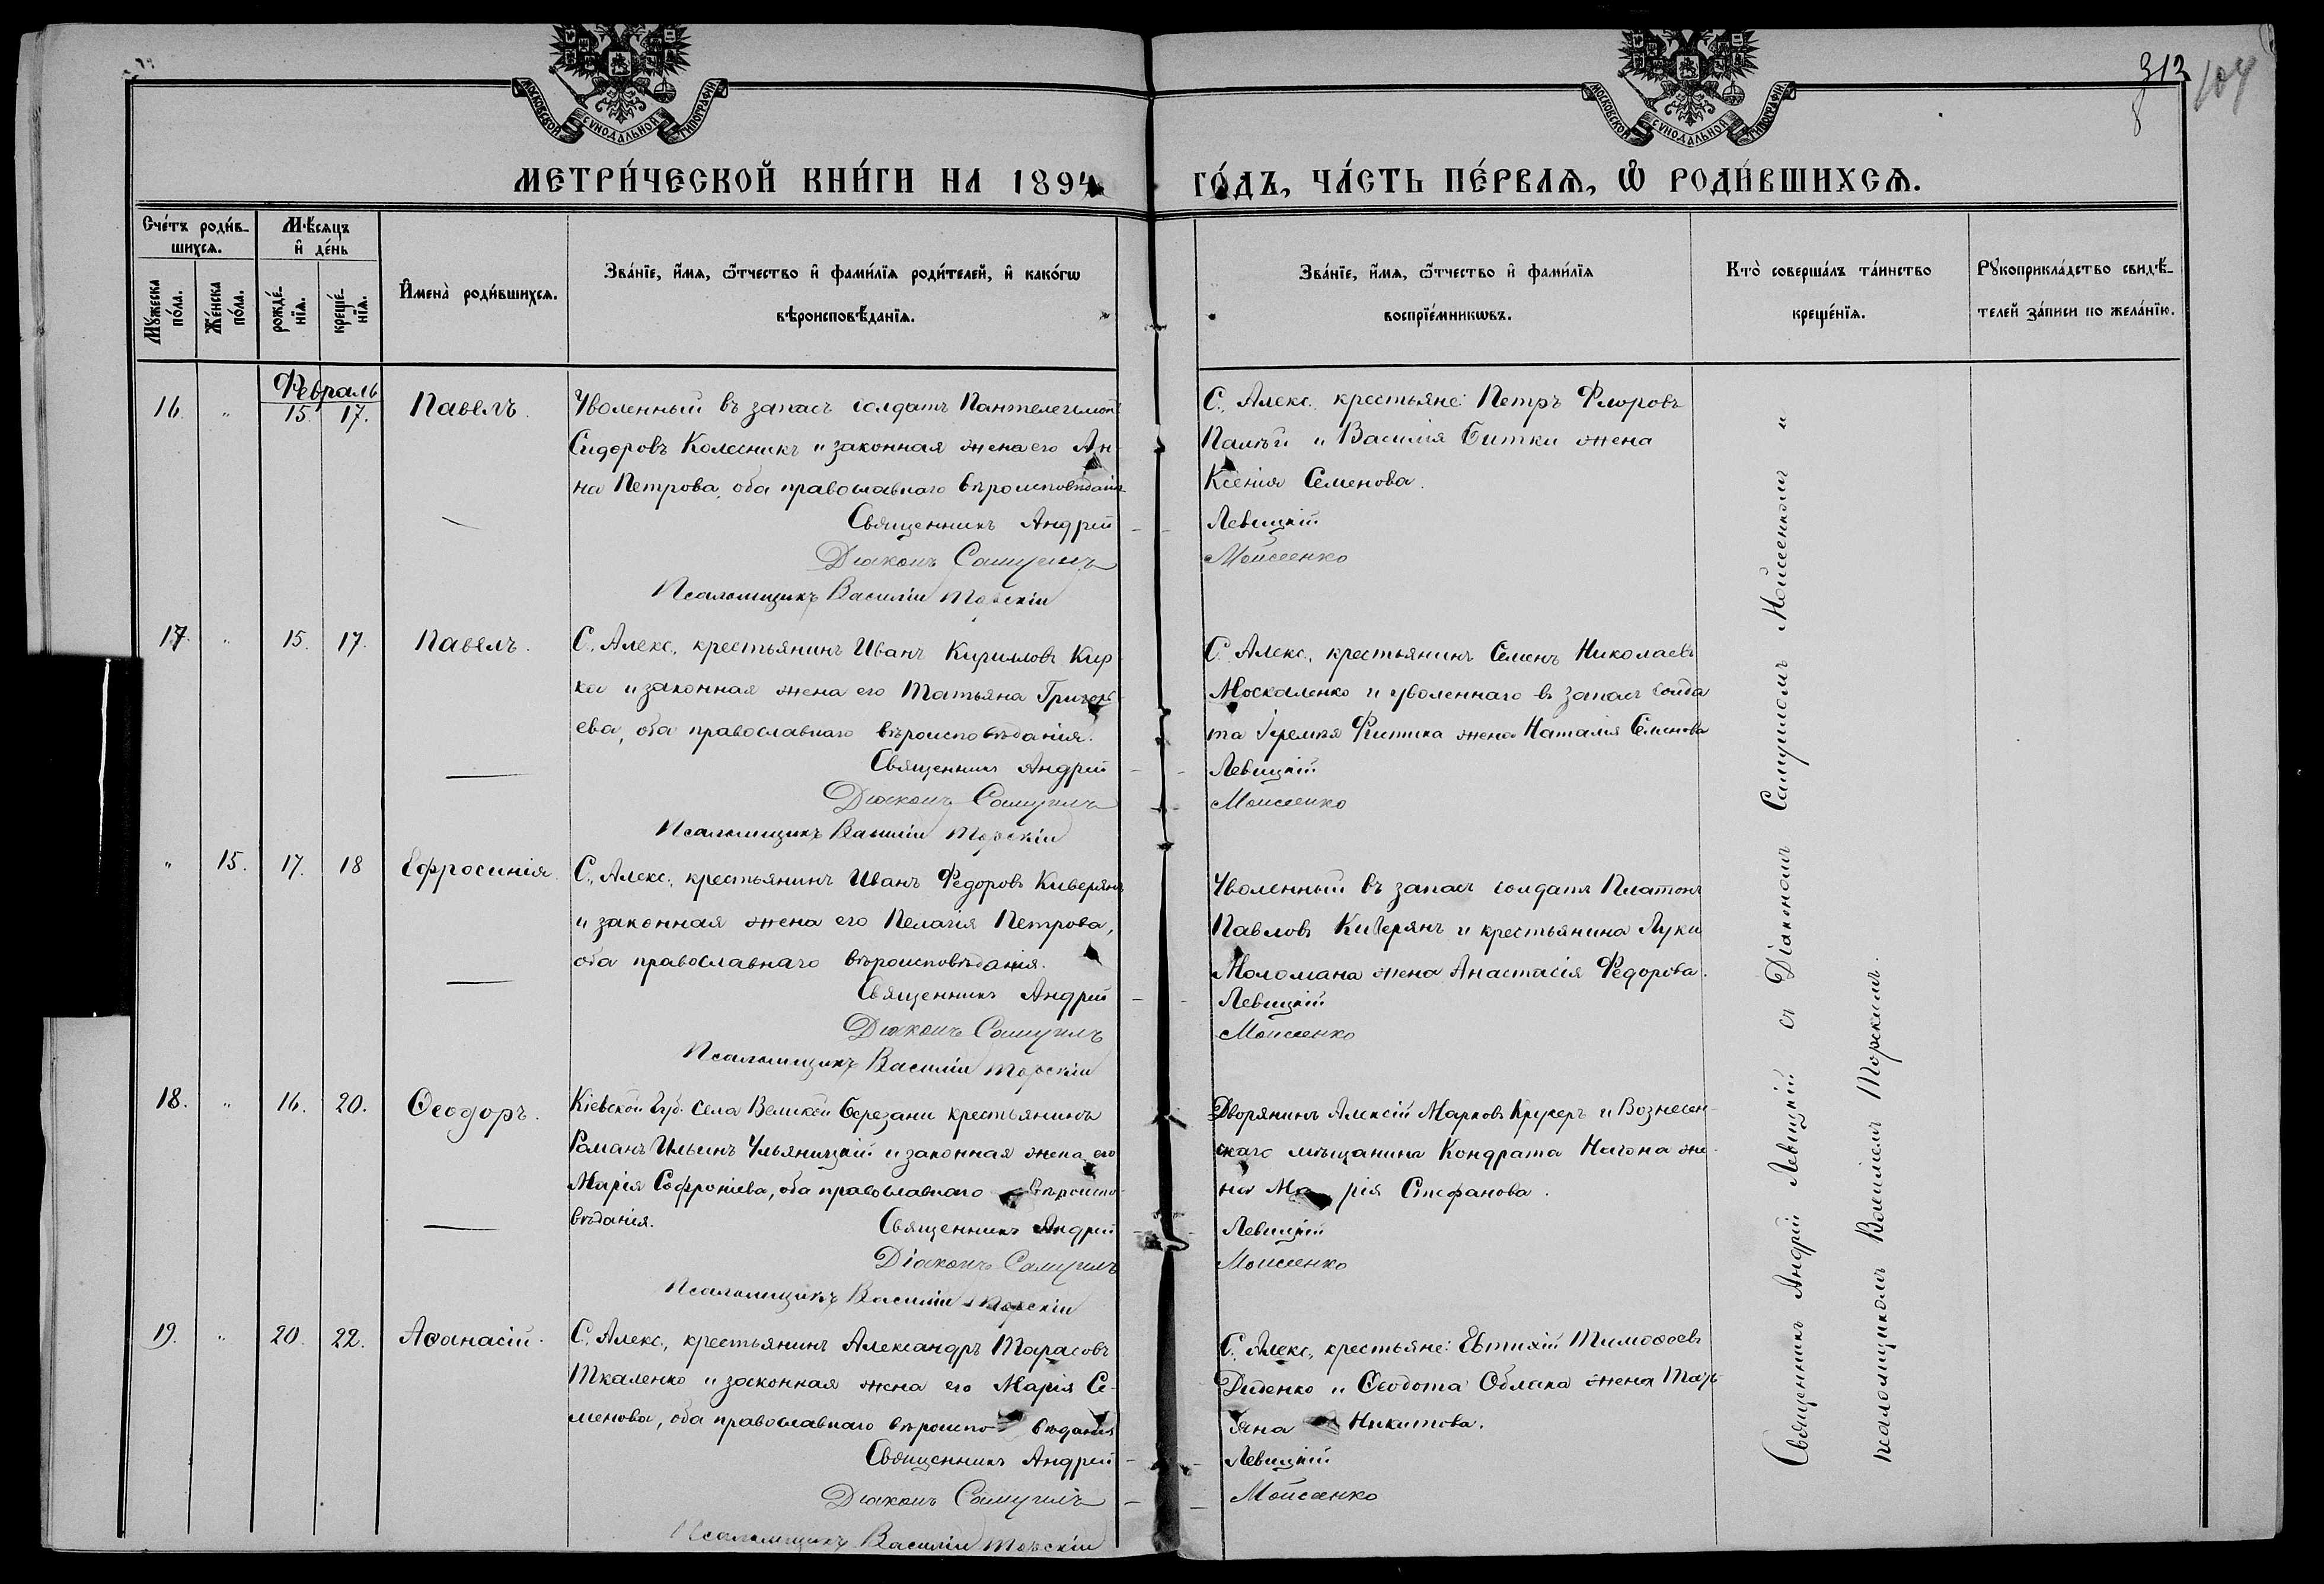 МОСКОВСКОЙ СѴНОДАЛЬНОЙ ТИПОГРАФІИ
МОСКОВСКОЙ СѴНОДАЛЬНОЙ ТИПОГРАФІИ
313
104
МЕТРИ́ЧЕСКОЙ КНИ́ГИ НА 1894 ГО́ДЪ, ЧА́СТЬ ПЕ́РВАѦ, Ѡ҆ РОДИ́ВШИХСѦ.
Сче́тъ роди́в-
шихсѧ.
Мѣ́сѧцъ
и҆ де́нь
Мꙋ́жеска
по́ла.
Же́нска
по́ла.
рожде́-
нїѧ.
креще́-
нїѧ.
И҆мена̀ роди́вшихсѧ.
Зва́нїе, и҆́мѧ, ѻ҆́тчество и҆ фами́лїѧ роди́телей, и҆ како́гѡ
вѣроисповѣ́данїѧ.
Зва́нїе, и҆́мѧ, ѻ҆́тчество и҆ фами́лїѧ
воспрїе́мникѡвъ.
Кто̀ соверша́лъ та́инство
креще́нїѧ.
Рꙋкоприкла́дство свидѣ́-
телей за́писи по жела́нїю.
Февраль
16. " 15. 17. Павелъ.
Уволенный въ запасъ солдатъ Пантелеимонъ
Сидоровъ Колесникъ и законная жена его Ан-
на Петрова, оба православнаго вѣроисповѣданія
Священникъ Андрій
Діаконъ Самуилъ
Псаломщикъ Василій Торскій
С. Алекс. крестьяне: Петръ Флоровъ
Палѣй и Василія Битки жена
Ксенія Семенова.
Левицкій
Моисеенко
17. " 15. 17. Павелъ.
С. Алекс. крестьянинъ Иванъ Кирилловъ Кир-
ка и законная жена его Татьяна Григорь-
ева, оба православнаго вѣроисповѣданія.
Священникъ Андрій
Діаконъ Самуилъ
Псаломщикъ Василій Торскій
С. Алекс. крестьянинъ Семенъ Николаевъ
Москаленко и уволеннаго въ запасъ солда
та Іеремія жена Наталія Семенова
Левицкій
Моисеенко
" 15. 17. 18 Ефросинія.
С. Алекс. крестьянинъ Иванъ Федоровъ Киверянъ
и законная жена его Пелагія Петрова,
оба православнаго вѣроисповѣданія.
Священникъ Андрій
Діаконъ Самуилъ
Псаломщикъ Василій Торскій
Уволенный въ запасъ солдатъ Платонъ
Павловъ Киверянъ и крестьянина Луки
Моломана жена Анастасія Федорова.
Левицкій
Моисеенко
18. " 16. 20. Ѳеодоръ.
Кіевской губ. села Великой Березани крестьянинъ
Романъ Ильинъ Ульяницкій и законная жена его
Марія Софроніева, оба православнаго вѣроиспо-
вѣданія.
Священникъ Андрій
Діаконъ Самуилъ
Псаломщикъ Василій Торскій
Дворянинъ Алексій Марковъ Крукеръ и Вознесен-
скаго мѣщанина Кондрата Нагона же-
на Марія Стефанова.
Левицкій
Моисеенко
19. " 20. 22. Аѳанасій.
С. Алекс. крестьянинъ Александръ Тарасовъ
Ткаленко и законная жена его Марія Се-
менова, оба православнаго вѣроисповѣданія
Священникъ Андрій
Діаконъ Самуилъ
Псаломщикъ Василій Торскій
С. Алекс. крестьяне: Евтихій Тимоѳеевъ
Диденко и Ѳеодота Облака жена Тать
яна Никитова.
Левицкій
Моисеенко
Священникъ Андрій Левицкій съ Діакономъ Самуиломъ Моисеенкомъ и
псаломщикомъ Василіемъ Торскимъ.